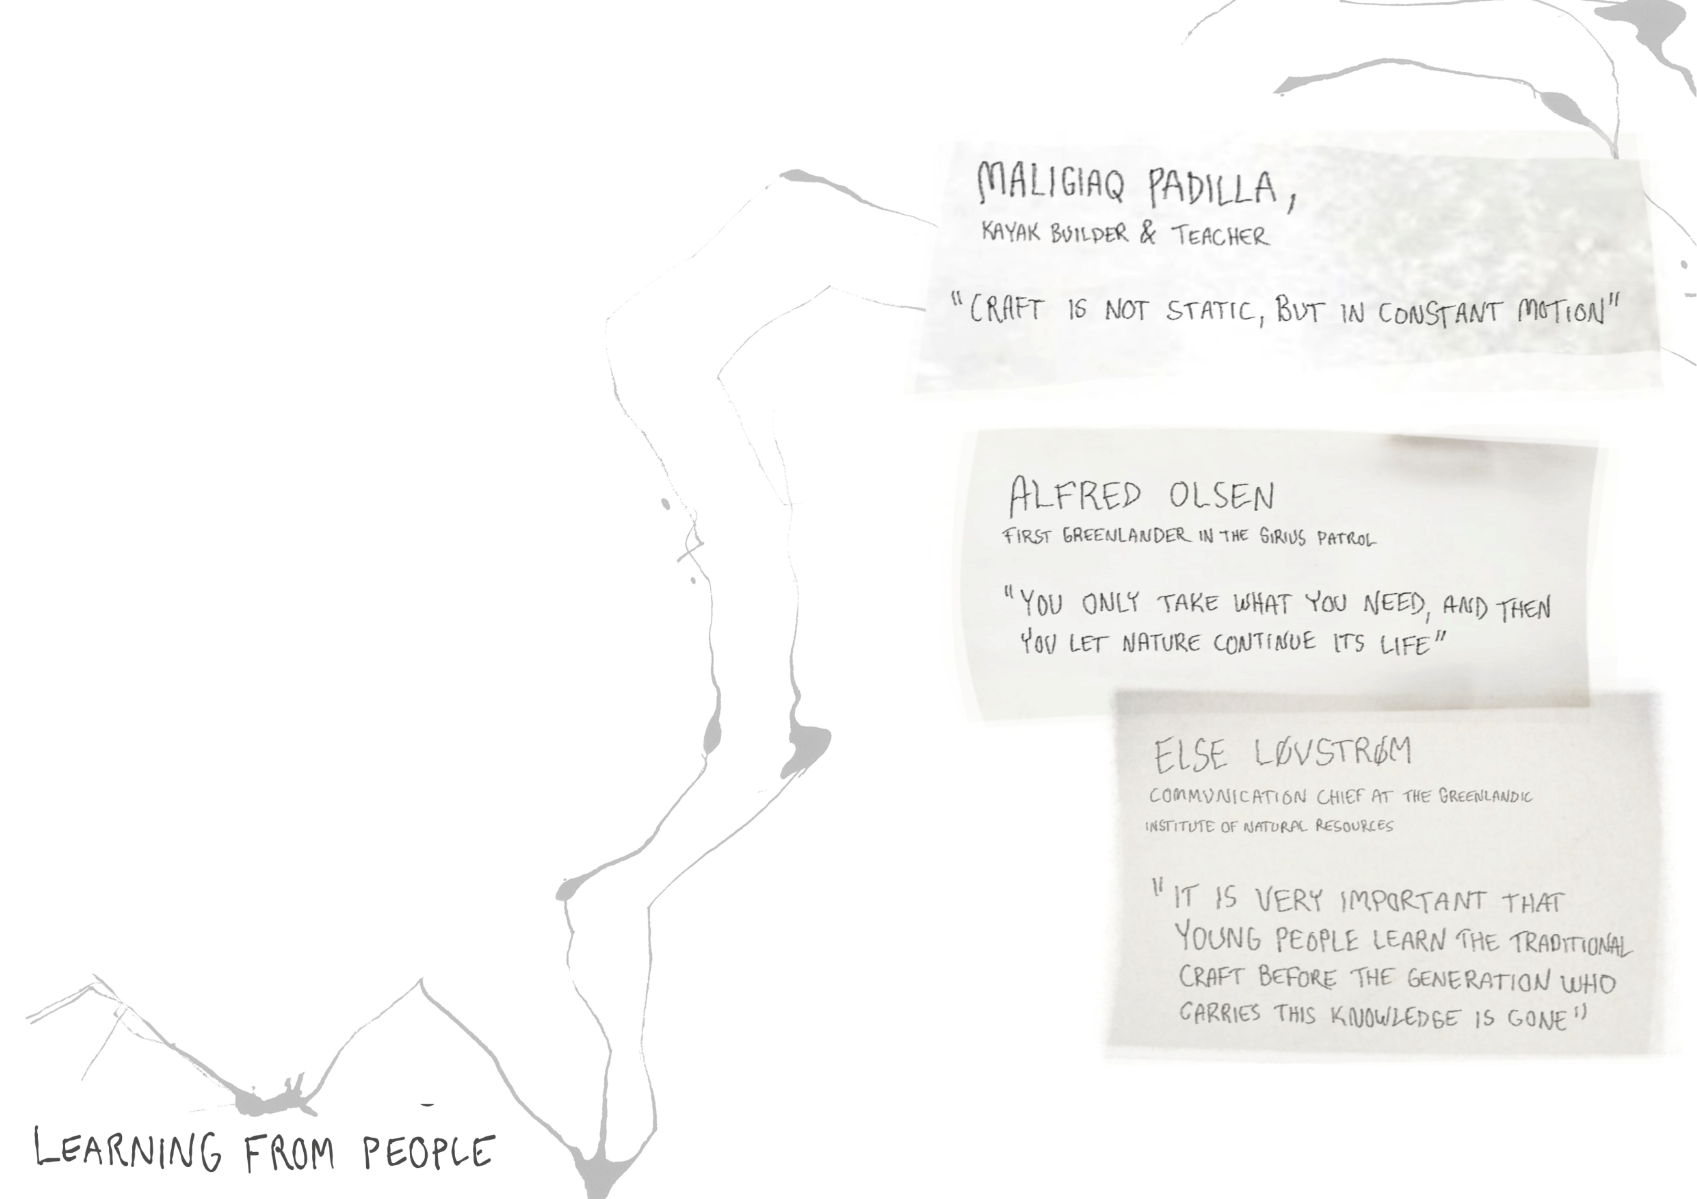 MALIGIAQ PADILLA,
KAYAK BUILDER & TEACHER
"CRAFT IS NOT STATIC, BUT IN CONSTANT MOTION"
ALFRED OLSEN
FIRST GREENLANDER IN THE SIRIUS PATROL
"YOU ONLY TAKE WHAT YOU NEED, AND THEN
YOU LET NATURE CONTINUE ITS LIFE"
ELSE LØVSTRØM
COMMUNICATION CHIEF AT THE GREENLANDIC
INSTITUTE OF NATURAL RESOURCES
"IT IS VERY IMPORTANT THAT
YOUNG PEOPLE LEARN THE TRADITIONAL
CRAFT BEFORE THE GENERATION WHO
CARRIES THIS KNOWLEDGE IS GONE"
LEARNING FROM PEOPLE